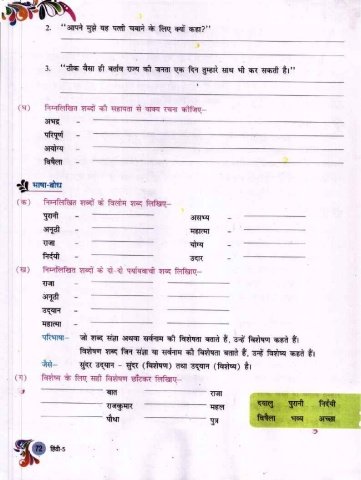 2. "आपने मुझे यह पत्ती चबाने के लिए क्यों कहा?"
3. "ठीक वैसा ही बर्ताव राज्य की जनता एक दिन तुम्हारे साथ भी कर सकती है।"
(घ) निम्नलिखित शब्दों की सहायता से वाक्य रचना कीजिए–
अभद्र –
परिपूर्ण –
अयोग्य –
विषैला –
भाषा-बोध
(क) निम्नलिखित शब्दों के विलोम शब्द लिखिए–
पुरानी – असभ्य –
अनूठी – महात्मा –
राजा – योग्य –
निर्दयी – उदार –
(ख) निम्नलिखित शब्दों के दो-दो पर्यायवाची शब्द लिखिए–
राजा –
अनूठी –
उद्यान –
महात्मा –
परिभाषा– जो शब्द संज्ञा अथवा सर्वनाम की विशेषता बताते हैं, उन्हें विशेषण कहते हैं।
विशेषण शब्द जिन संज्ञा या सर्वनाम की विशेषता बताते हैं, उन्हें विशेष्य कहते हैं।
जैसे– सुंदर उद्यान – सुंदर (विशेषण) तथा उद्यान (विशेष्य) है।
(ग) विशेष्य के लिए सही विशेषण छाँटकर लिखिए–
बात राजा
राजकुमार महल
पौधा पुत्र
दयालु पुरानी निर्दयी
विषैला भव्य अच्छा
72 हिंदी-5